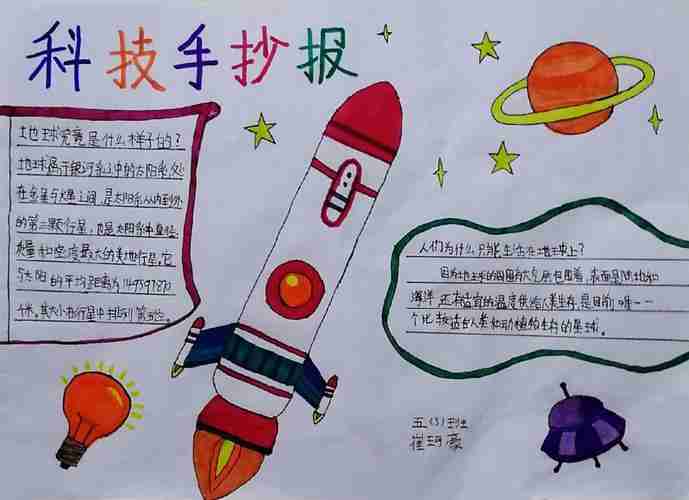 科技手抄报
地球究竟是什么样子的？
地球属于银河系中的太阳系,处
在金星与火星之间,是太阳系从内到外
的第三颗行星,也是太阳系中直径
质量和密度最大的类地行星。它
与太阳的平均距离为149597870
千米。其大小在行星中排列第五位。
人们为什么只能生活在地球上？
因为地球的周围有大气层包围着,表面是陆地和
海洋,还有适宜的温度供给人类生存,是目前唯一一
个比较适合人类和动植物生存的星球。
五(3)班
崔珂豪